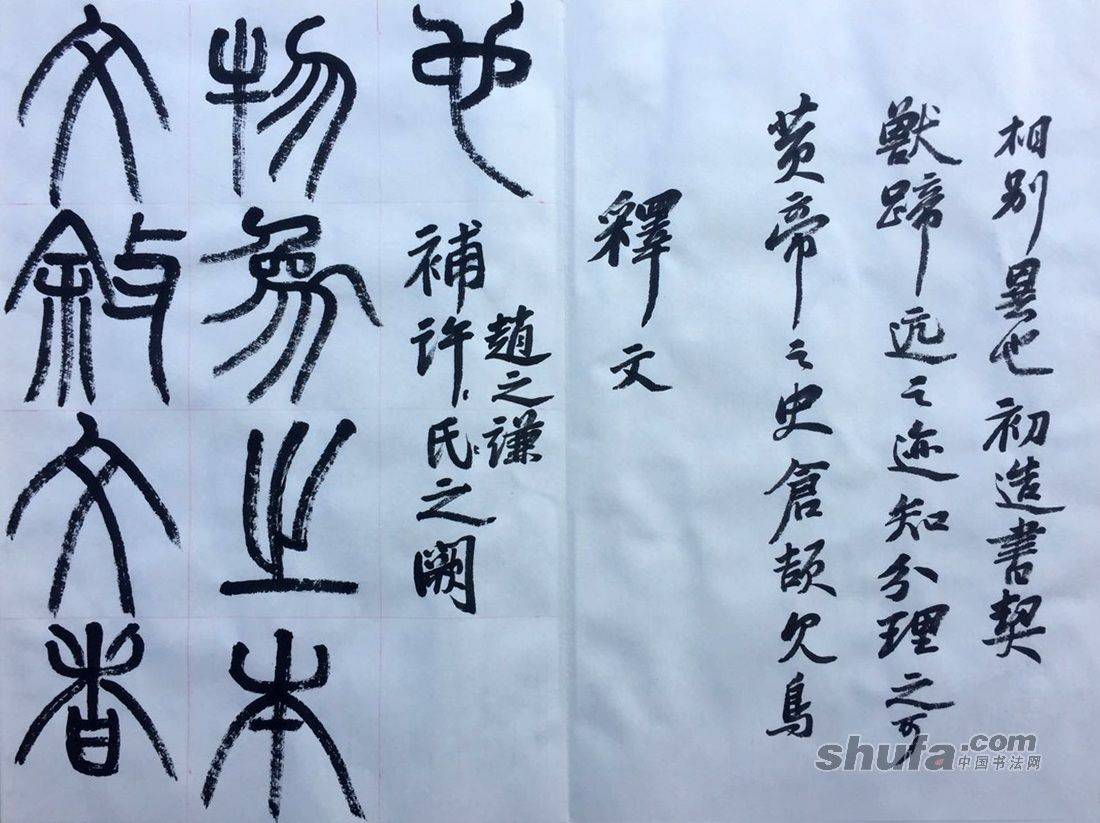 文敘文者
物象之本
也
補許氏之闕
趙之謙
釋文
黃帝之史倉頡見鳥
獸蹄迒之迹知分理之可
相別異也初造書契
shufa.com
中国书法网